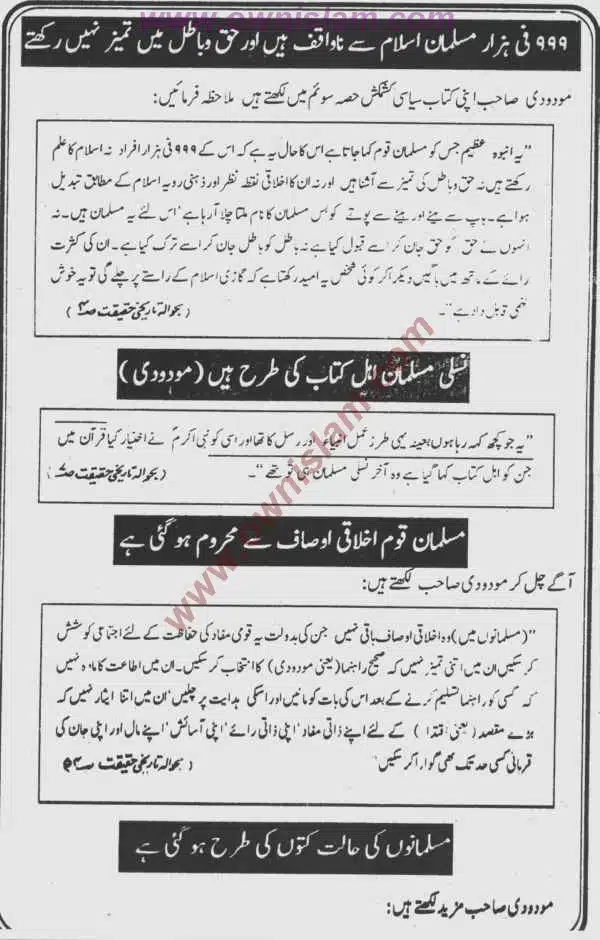 www.ownislam.com
۹۹۹ فی ہزار مسلمان اسلام سے ناواقف ہیں اور حق و باطل میں تمیز نہیں رکھتے
مودودی صاحب اپنی کتاب سیاسی کشمکش حصہ سوئم میں لکھتے ہیں ملاحظہ فرمائیں:
"یہ انبوہ عظیم جس کو مسلمان قوم کہا جاتا ہے اس کا حال یہ ہے کہ اس کے ۹۹۹ فی ہزار افراد نہ اسلام کا علم
رکھتے ہیں نہ حق و باطل کی تمیز سے آشنا ہیں اور نہ ان کا اخلاقی نقطہ نظر اور ذہنی رویہ اسلام کے مطابق تبدیل
ہوا ہے۔ باپ سے بیٹے اور بیٹے سے پوتے کو بس مسلمان کا نام ملتا چلا آ رہا ہے' اس لئے یہ مسلمان ہیں۔ نہ
انہوں نے حق کو حق جان کر اسے قبول کیا ہے نہ باطل کو باطل جان کر اسے ترک کیا ہے۔ ان کی کثرت
رائے کے ہاتھ میں باگیں دیکر اگر کوئی شخص یہ امید رکھتا ہے کہ گاڑی اسلام کے راستے پر چلے گی تو یہ خوش
فہمی قابل داد ہے"۔ (بحوالہ تاریخی حقیقت ص۴)
نسلی مسلمان اہل کتاب کی طرح ہیں (مودودی)
"یہ جو کچھ کہہ رہا ہوں بعینہ یہی طرز عمل انبیاء اور رسل کا تھا اور اسی کو نبی اکرمؐ نے اختیار کیا قرآن میں
جن کو اہل کتاب کہا گیا ہے وہ آخر نسلی مسلمان ہی تو تھے"۔ (بحوالہ تاریخی حقیقت
مسلمان قوم اخلاقی اوصاف سے محروم ہو گئی ہے
آگے چل کر مودودی صاحب لکھتے ہیں:
"(مسلمانوں میں) وہ اخلاقی اوصاف باقی نہیں جن کی بدولت یہ قومی مفاد کی حفاظت کے لئے اجتماعی کوشش
کر سکیں ان میں اتنی تمیز نہیں کہ صحیح راہنما (یعنی مودودی) کا انتخاب کر سکیں۔ ان میں اطاعت کا مادہ نہیں
کہ کسی کو راہنما تسلیم کرنے کے بعد اس کی بات کو مانیں اور اسکی ہدایت پر چلیں' ان میں اتنا ایثار نہیں کہ
بڑے مقصد (یعنی فتنہ) کے لئے اپنے ذاتی مفاد' اپنی ذاتی رائے' اپنی آسائش' اپنے مال اور اپنی جان کی
قربانی کسی حد تک بھی گوارا کر سکیں" (بحوالہ تاریخی حقیقت
مسلمانوں کی حالت کتوں کی طرح ہو گئی ہے
مودودی صاحب مزید لکھتے ہیں:
www.ownislam.com